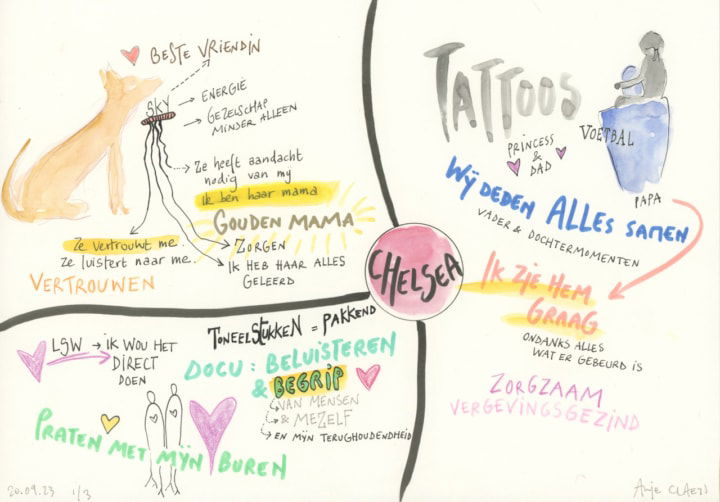 BESTE VRIENDIN
SKY
ENERGIE
GEZELSCHAP
MINDER ALLEEN
Ze heeft aandacht
nodig van my
Ik ben haar mama
GOUDEN MAMA
ZORGEN
IK HEB HAAR ALLES
GELEERD
Ze vertrouwt me.
Ze luistert naar me..
VERTROUWEN
CHELSEA
TATTOOS
PRINCESS
&
DAD
VOETBAL
PAPA
WIJ DEDEN ALLES SAMEN
VADER & DOCHTERMOMENTEN
IK ZIE HEM
GRAAG
ONDANKS ALLES
WAT ER GEBEURD IS
ZORGZAAM
VERGEVINGSGEZIND
LSW → IK WOU HET
DIRECT
DOEN
TONEELSTUKKEN = PAKKEND
DOCU : BELUISTEREN
& BEGRIP
VAN MENSEN
& MEZELF
EN MIJN TERUGHOUDENDHEID
PRATEN MET MIJN BUREN
20.09.23 1/3